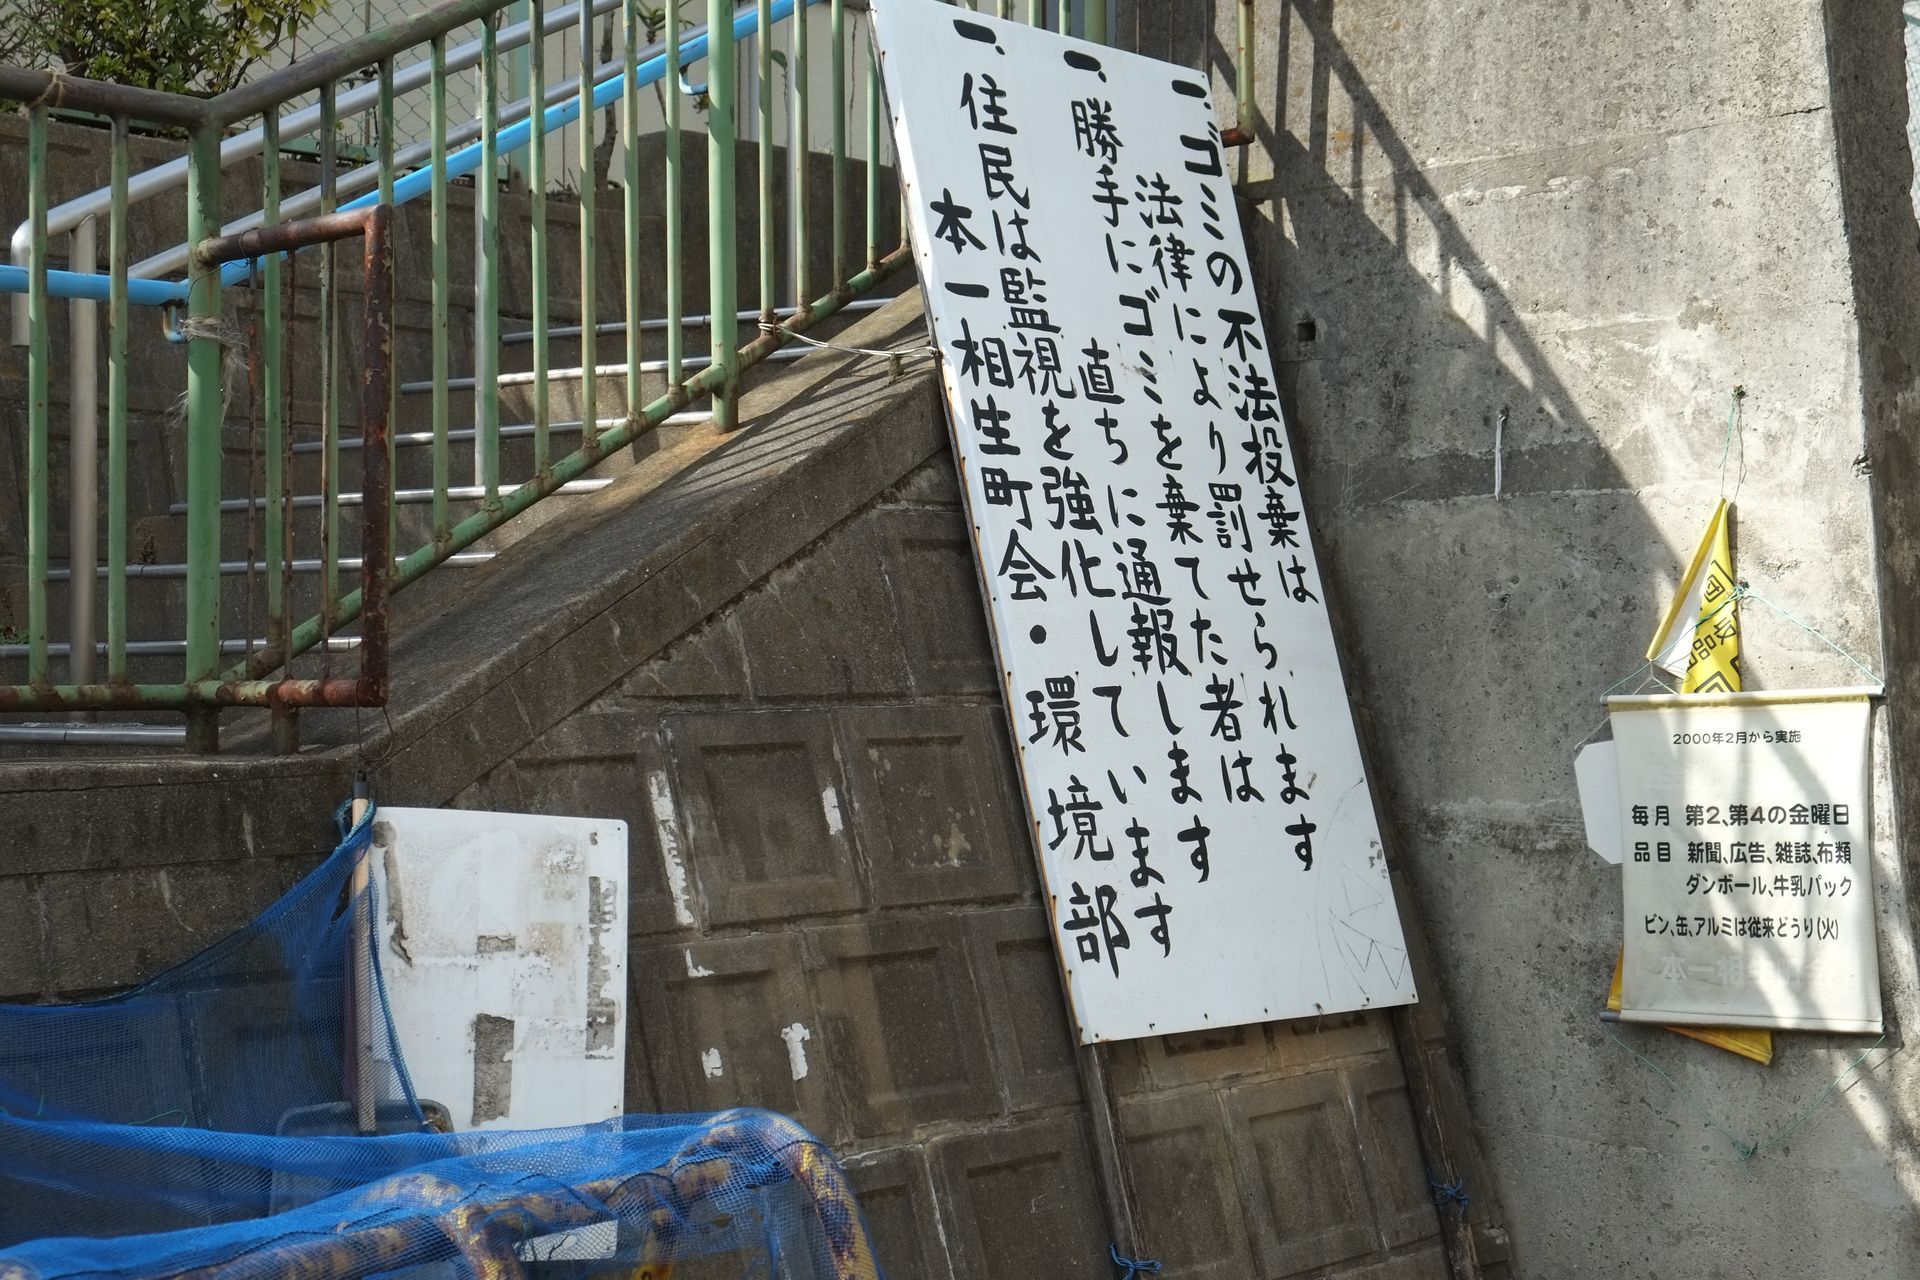 一、ゴミの不法投棄は
法律により罰せられます
一、勝手にゴミを棄てた者は
直ちに通報します
一、住民は監視を強化しています
本一相生町会・環境部
2000年2月から実施
毎月 第2、第4の金曜日
品目 新聞、広告、雑誌、布類
ダンボール、牛乳パック
ビン、缶、アルミは従来どうり(火)